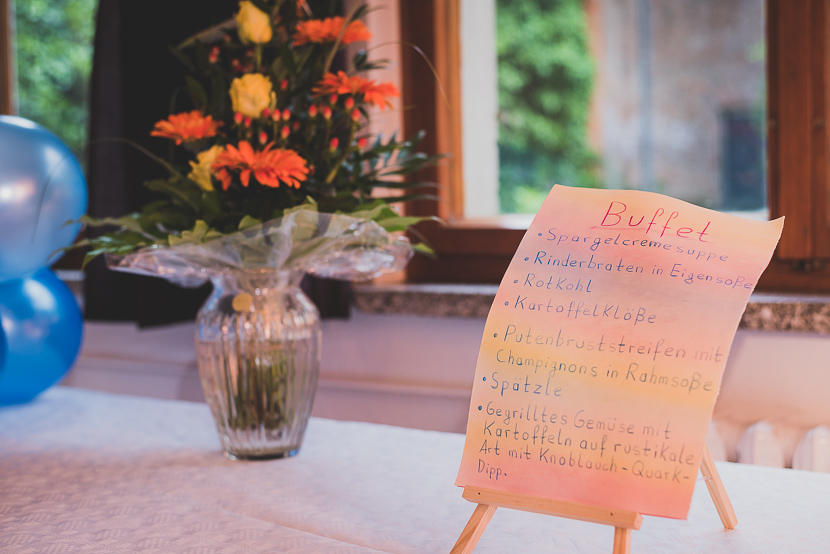 Buffet
• Spargelcremesuppe
• Rinderbraten in Eigensoße
• Rotkohl
• Kartoffelklöße
• Putenbruststreifen mit
Champignons in Rahmsoße
• Spätzle
• Gegrilltes Gemüse mit
Kartoffeln auf rustikale
Art mit Knoblauch-Quark-
Dipp.